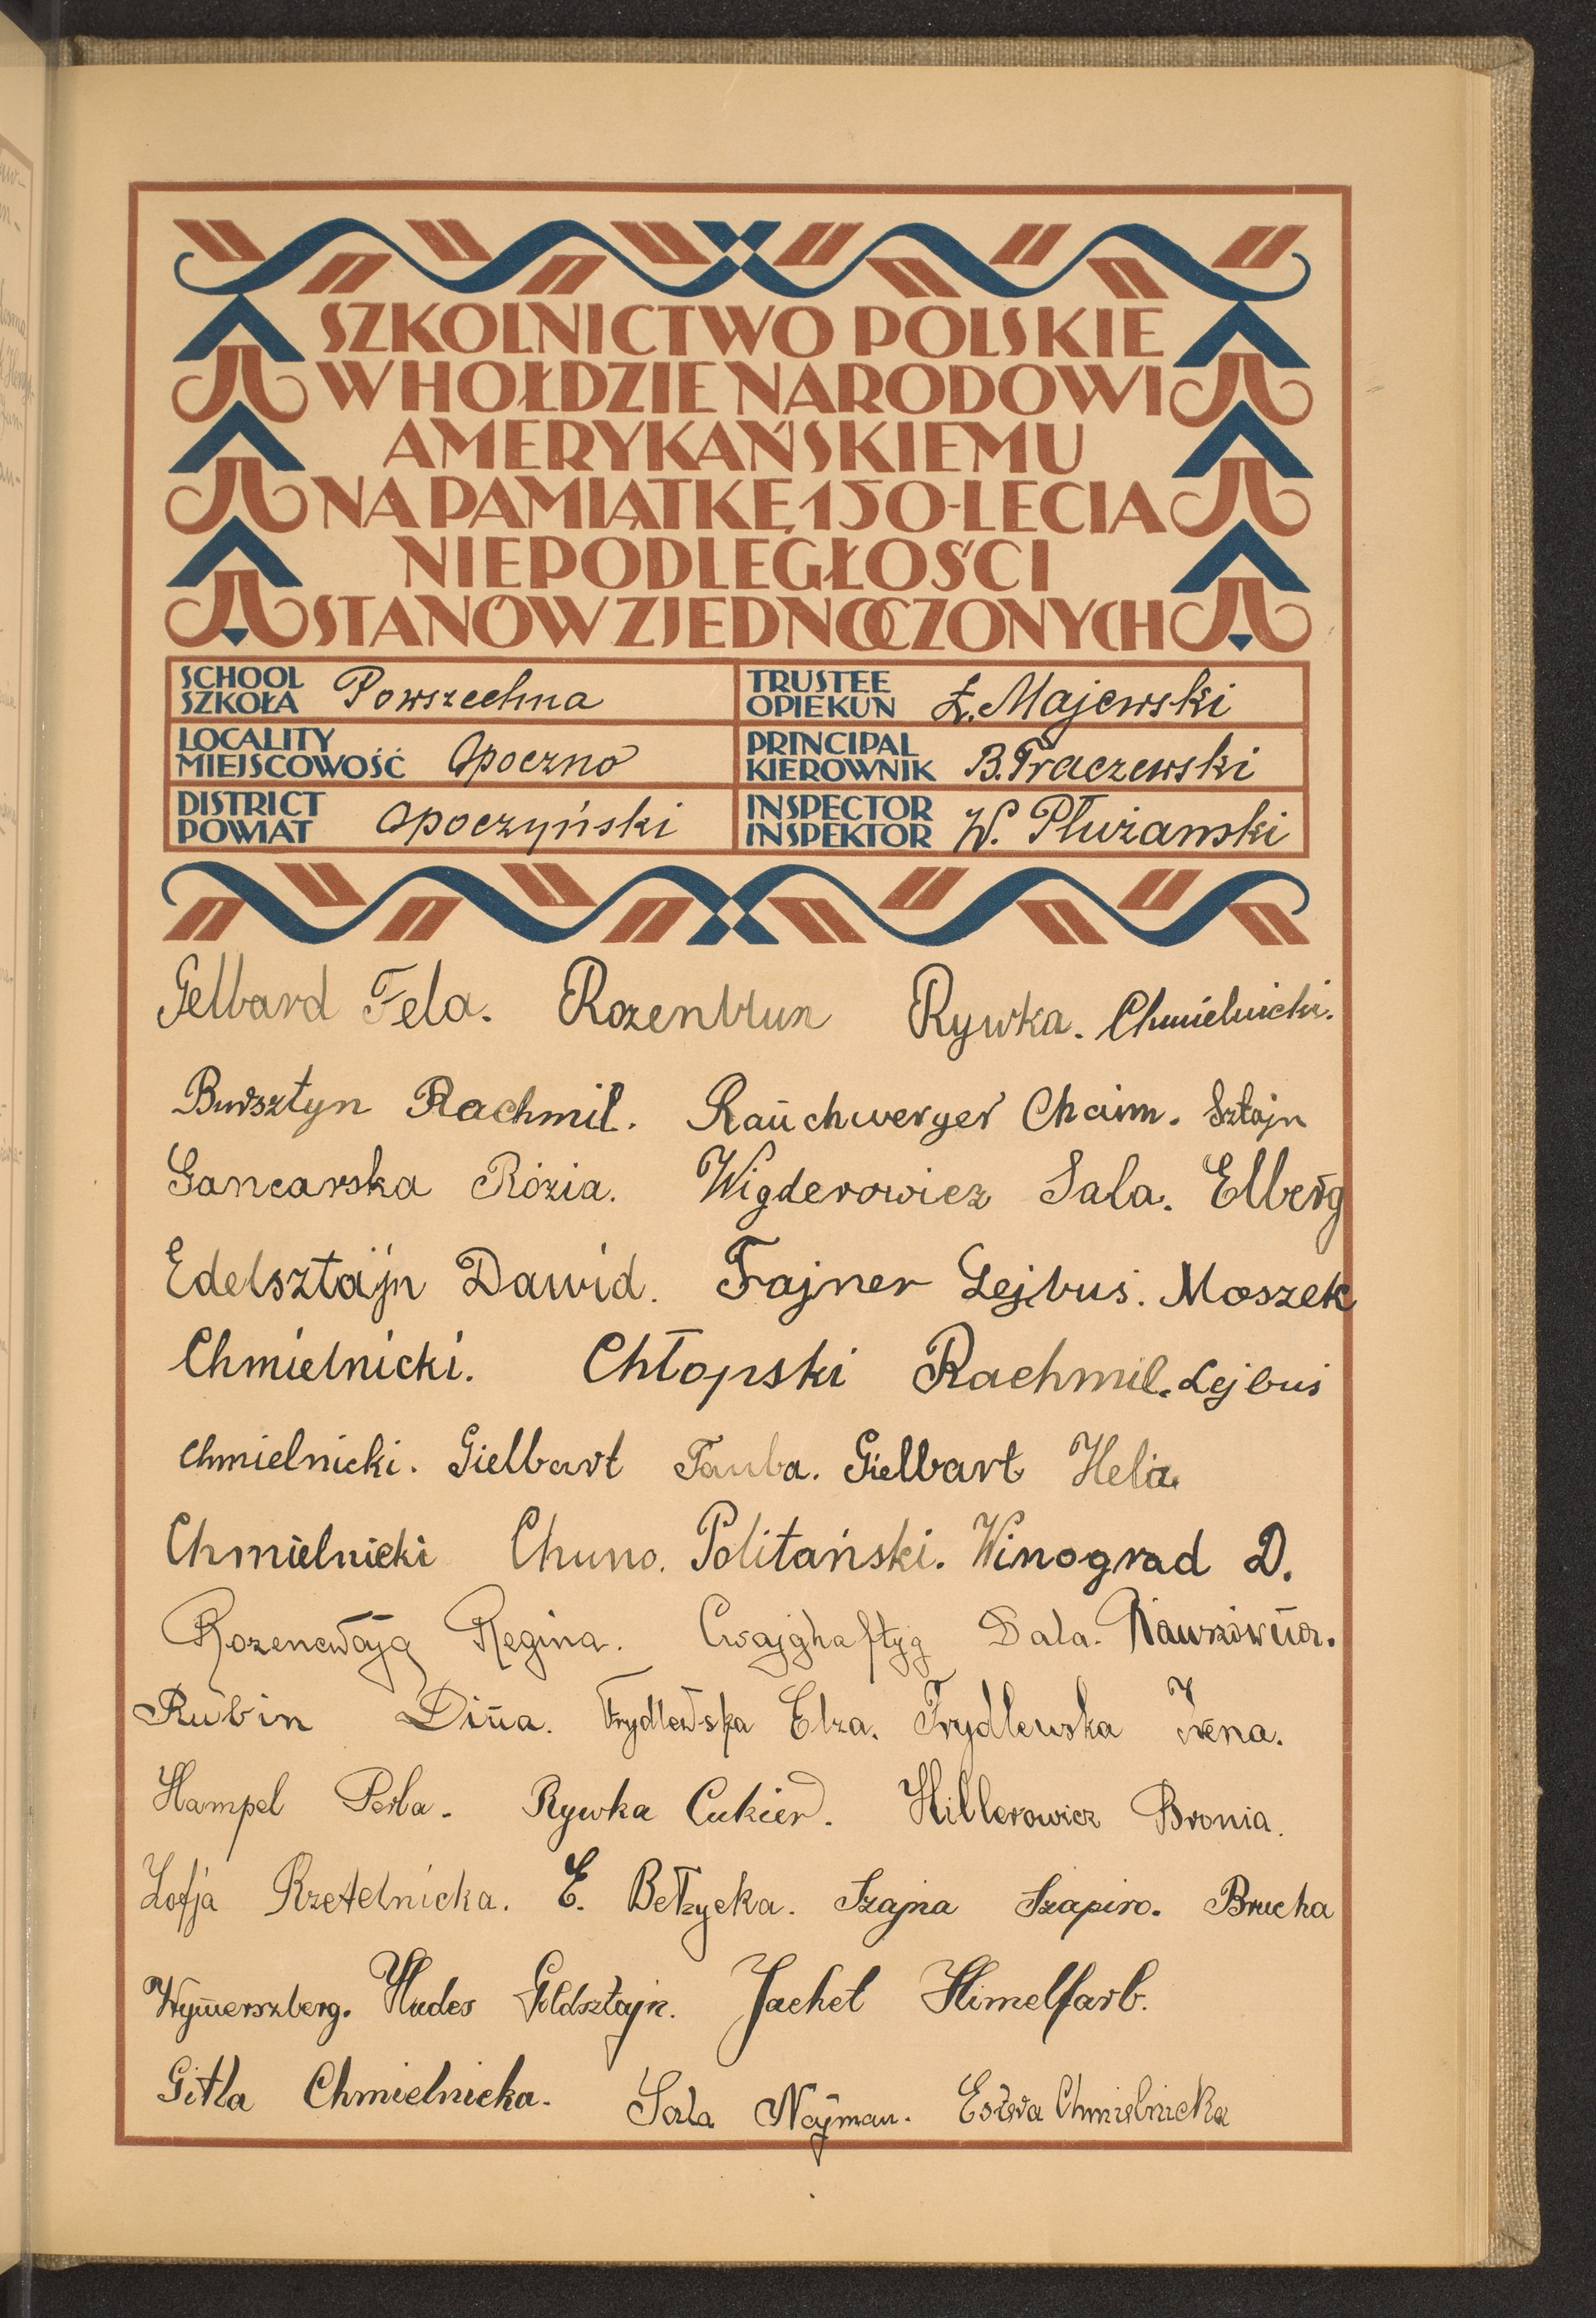 SZKOLNICTWO POLSKIE
W HOŁDZIE NARODOWI
AMERYKAŃSKIEMU
NA PAMIĄTKĘ 150-LECIA
NIEPODLEGŁOŚCI
STANÓW ZJEDNOCZONYCH
SCHOOL
SZKOŁA Powszechna
TRUSTEE
OPIEKUN Ł. Majewski
LOCALITY
MIEJSCOWOŚĆ Opoczno
PRINCIPAL
KIEROWNIK B. Traczewski
DISTRICT
POWIAT Opoczyński
INSPECTOR
INSPEKTOR W. Płużanski
Gelbard Fela. Rozenblun Rywka. Chmielnicki.
Bursztyn Rachmil. Rauchwerger Chaim. Sztajn
Gancarska Rózia. Wigderowicz Sala. Elberg
Edelsztajn Dawid. Fajner Lejbuś. Moszek
Chmielnicki. Chłopski Rachmil. Lejbuś
Chmielnicki. Gielbart Tauba. Gielbart Hela.
Chmielnicki Chuno. Politański. Winograd D.
Rozencwajg Regina. Cwajghaftyg Dala.
Rubin Dina. Frydlewska Elza. Frydlewska Irena.
Hampel Perla. Rywka Cukier. Hillerowicz Bronia.
Zofja Rzetelnicka. E. Bełzycka. Szajna Szapiro. Brucha
Wymerszberg. Hudes Goldsztajn. Jachet Himelfarb.
Gitla Chmielnicka. Sala Najman. Estera Chmielnicka